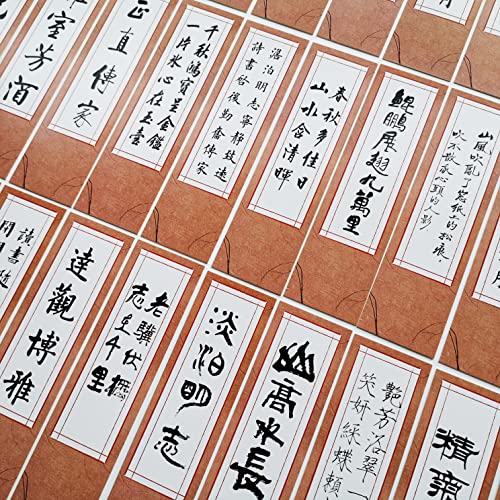 室芳酒
正直傳家
千秋鴻寶呈金鑑
一片冰心在玉壺
淡泊明志寧靜致遠
詩書啓後勤奮傳家
春秋多佳日
山水含清暉
鯤鵬展翅九萬里
山風吹亂了窗紙上的松痕，
吹不散我心頭的人影
讀書隨
達觀博雅
老驥伏櫪
志在千里
淡泊明志
山高水長
艷芳洛翠一
笑妍綵蝶頻
精